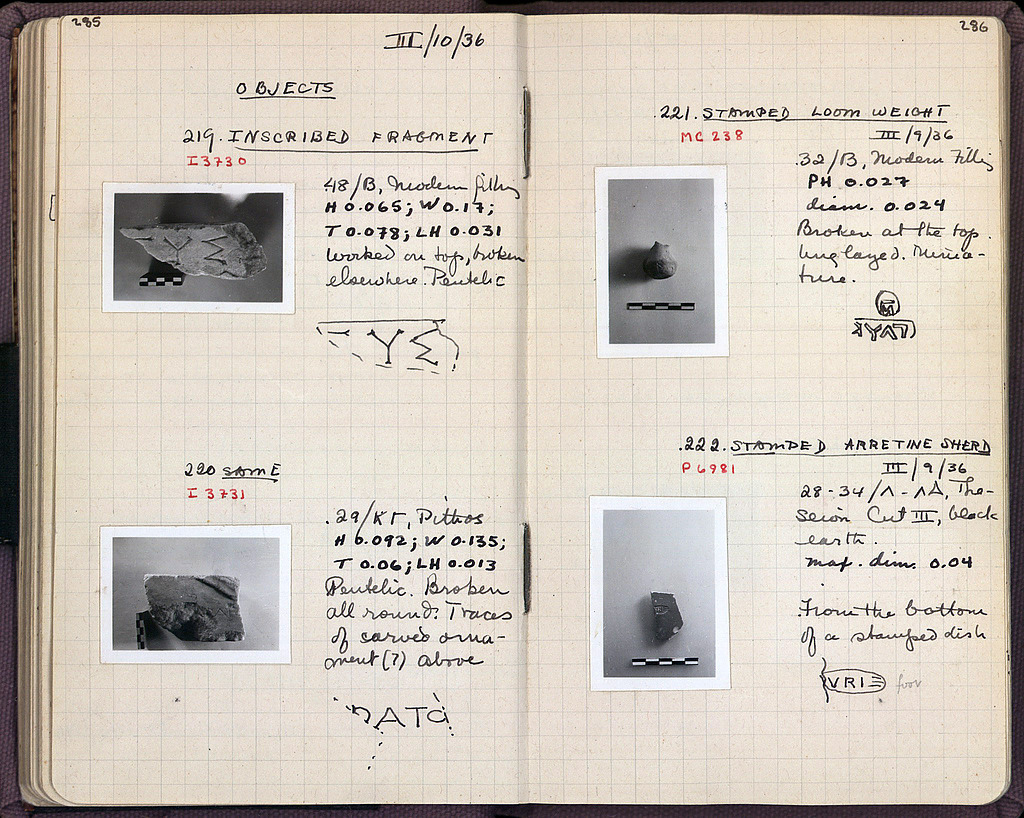 285
III/10/36
OBJECTS
219. INSCRIBED FRAGMENT
I 3730
48/B, Modern filling
H 0.065; W 0.17;
T 0.078; LH 0.031
worked on top, broken
elsewhere. Pentelic
ΥΣ
220 SAME
I 3731
.29/ΚΓ, Pithos
H 0.092; W 0.135;
T 0.06; LH 0.013
Pentelic. Broken
all round. Traces
of carved orna-
ment (?) above
ΠΑΤΑ
286
221. STAMPED LOOM WEIGHT
MC 238
III/9/36
.32/B, Modern filling
PH 0.027
diam. 0.024
Broken at the top.
Unglazed. Minia-
ture.
.222. STAMPED ARRETINE SHERD
P 6981
III/9/36
28-34/Λ-ΛΔ, The-
seion Cut III, black
earth.
max. dim. 0.04
From the bottom
of a stamped dish
VRIE